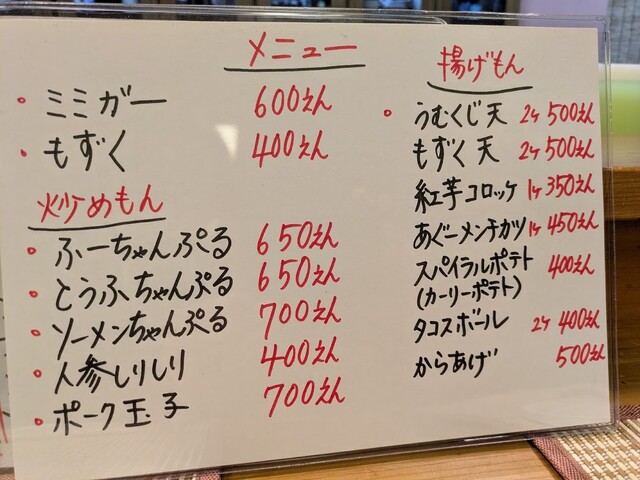 メニュー
・ミミガー 600えん
・もずく 400えん
炒めもん
・ふーちゃんぷる 650えん
・とうふちゃんぷる 650えん
・ソーメンちゃんぷる 700えん
・人参しりしり 400えん
・ポーク玉子 700えん
揚げもん
・うむくじ天 2ケ 500えん
もずく天 2ケ 500えん
紅芋コロッケ 1ケ 350えん
あぐーメンチカツ 1ケ 450えん
スパイラルポテト 400えん
(カーリーポテト)
タコスボール 2ケ 400えん
からあげ 500えん